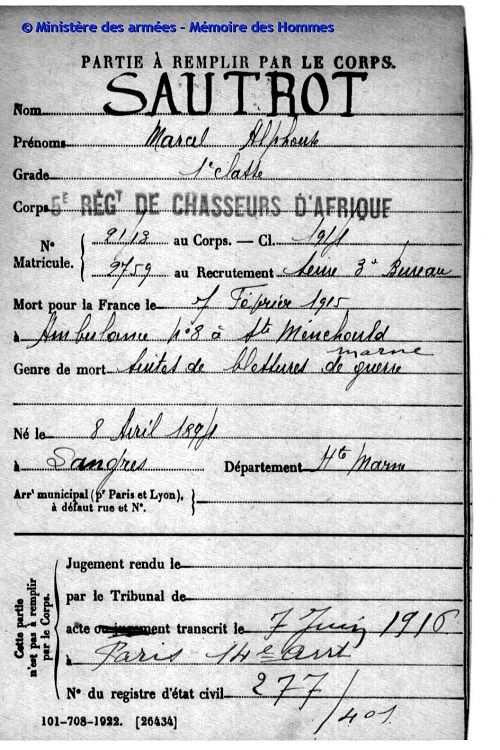 © Ministère des armées - Mémoire des Hommes
PARTIE À REMPLIR PAR LE CORPS.
Nom SAUTROT
Prénoms Marcel Alphonse
Grade 1e classe
Corps 5E RÉGT DE CHASSEURS D'AFRIQUE
N° Matricule. { 2113 au Corps. — Cl. 1914
2759 au Recrutement Seine 3e Bureau
Mort pour la France le 7 Février 1915
à Ambulance n°8 à Ste Menehould
marne
Genre de mort suites de blessures de guerre
Né le 8 Avril 1894
à Langres Département Hte Marne
Arrt municipal (pr Paris et Lyon), à défaut rue et N°. }
Cette partie n'est pas à remplir par le Corps.
Jugement rendu le
par le Tribunal de
acte ou jugement transcrit le 7 Juin 1916
à Paris 14e arrt
N° du registre d'état civil 277/401
101-708-1922. [26434]